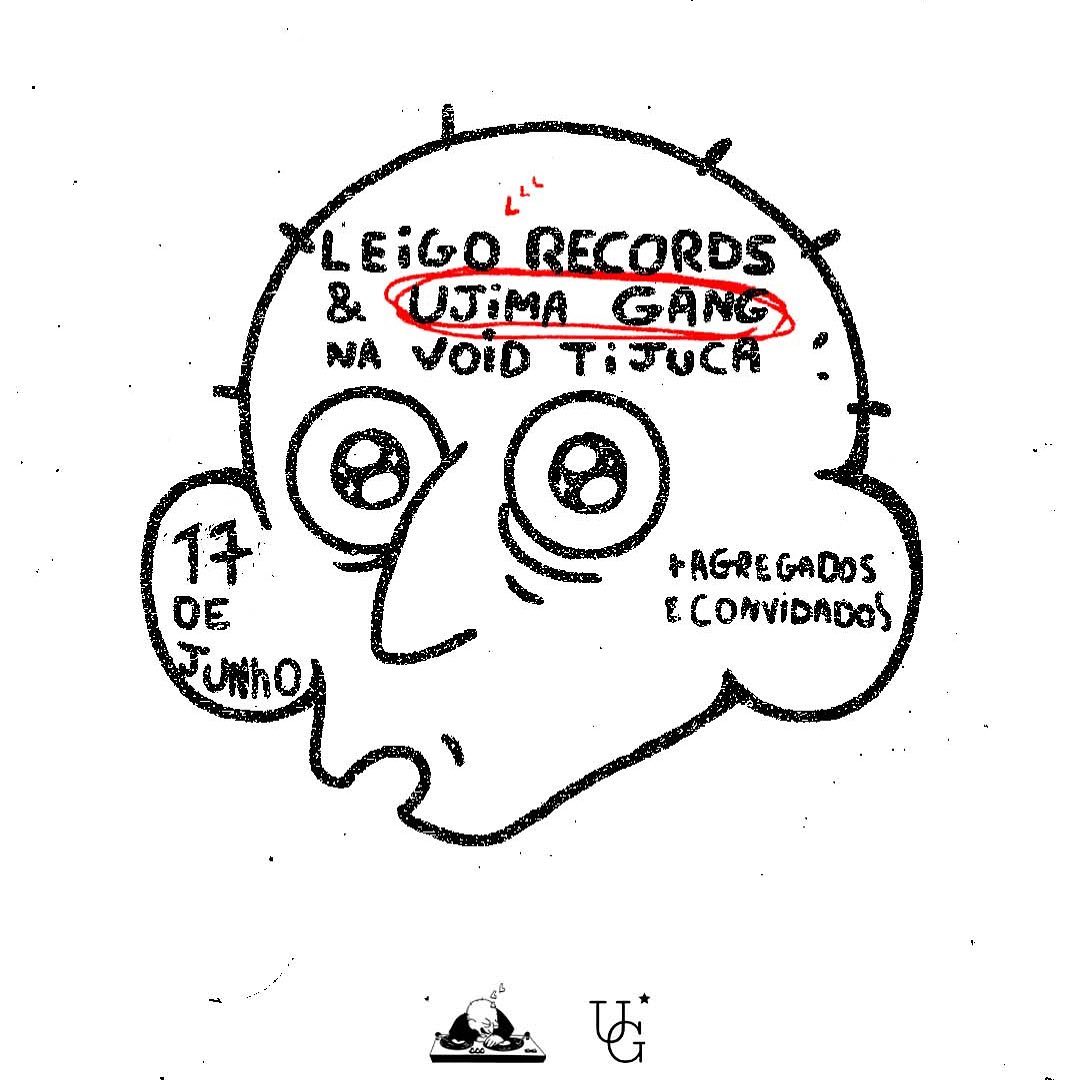 LEiGO RECORDS
& UJiMA GANG
NA VOiD TiJUCA
17
DE
JUNhO
+AGREGADOS
E CONViDADOS
UG